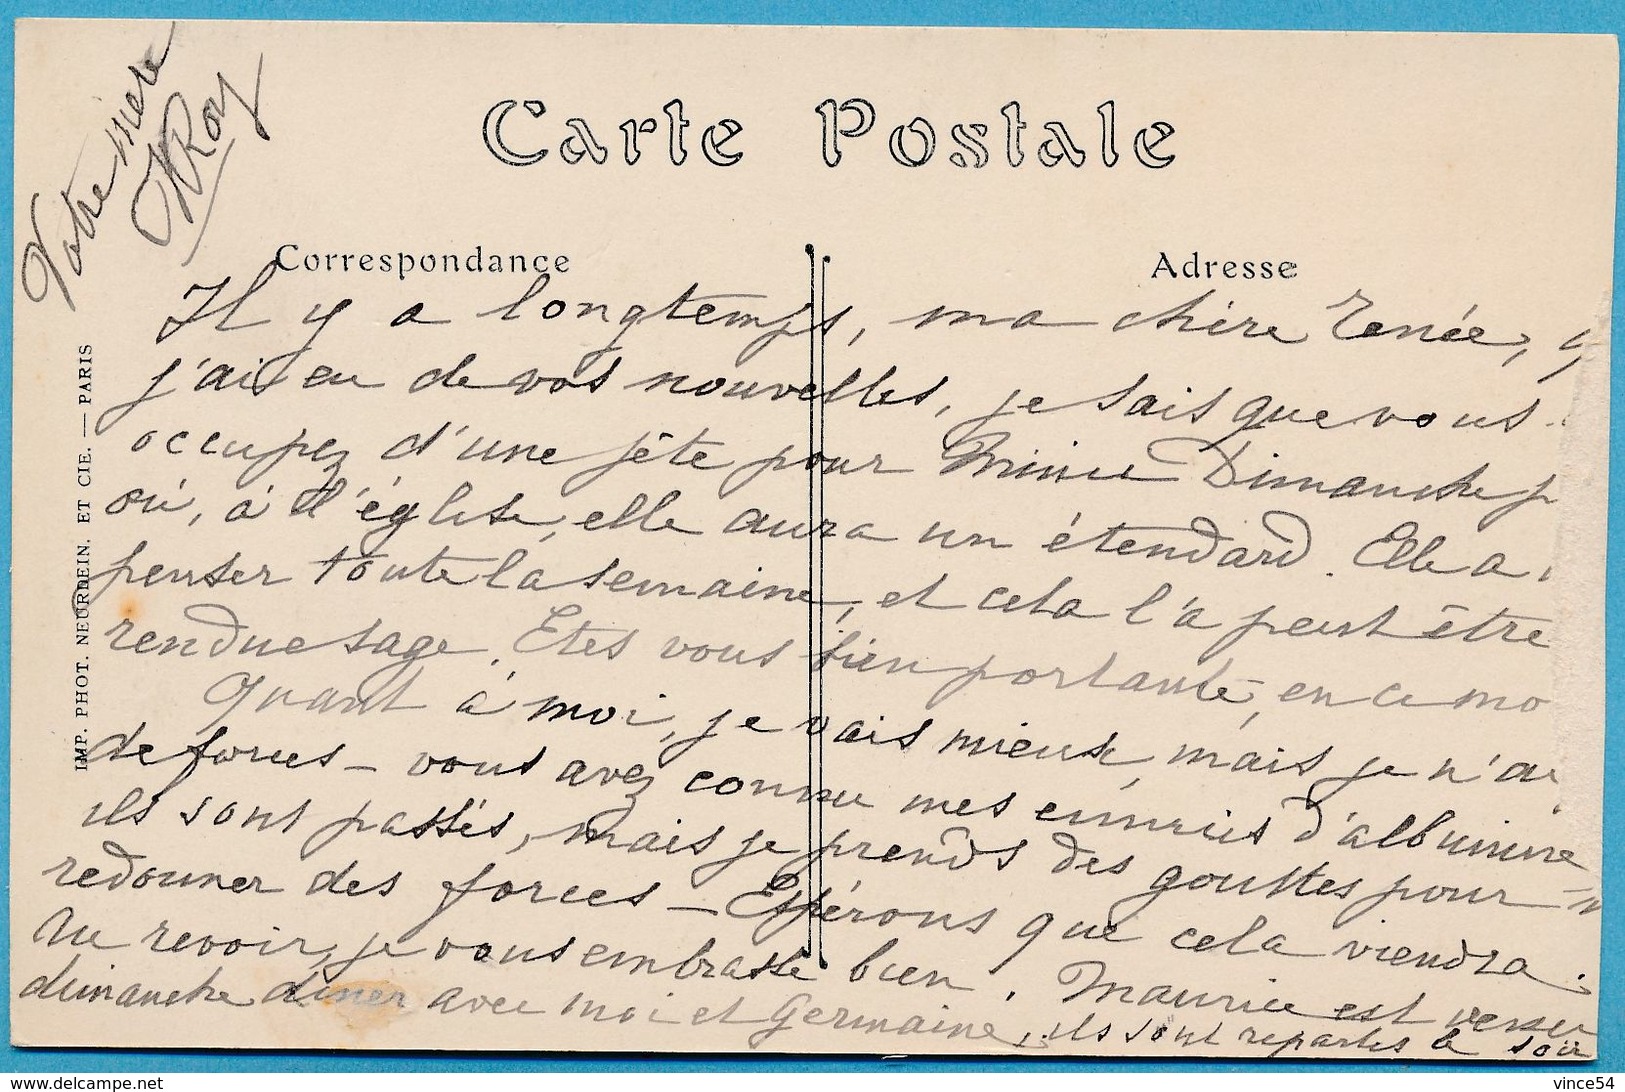 Carte Postale
Correspondance
Adresse
Il y a longtemps, ma chère Renée,
j'ai eu de vos nouvelles, je sais que vous
occupez d'une fête pour Mimie Dimanche p
où, à l'église, elle aura un étendard. Elle a
penser toute la semaine, et cela l'a peut être
rendue sage. Etes vous bien portante, en ce mo
Quant à moi, je vais mieux, mais je n'ai
de forces – vous avez connu mes ennuies d'albumine
ils sont passés, mais je prends des gouttes pour
redonner des forces – Espérons que cela viendra.
Au revoir, je vous embrasse bien. Maurice est venu
dimanche diner avec moi et Germaine, ils sont repartis le soir
Votre mère
Roy
IMP. PHOT. NEURDEIN. ET CIE. — PARIS
delcampe.net
vince54